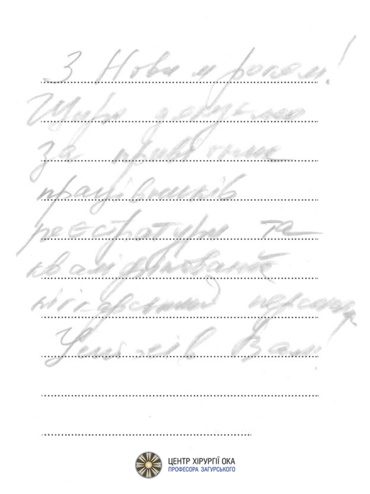 З Новим роком!
Щиро дякуємо
за привітних
працівників
реєстратури та
кваліфікований
лікарський персонал
Успіхів Вам!
ЦЕНТР ХІРУРГІЇ ОКА
ПРОФЕСОРА ЗАГУРСЬКОГО